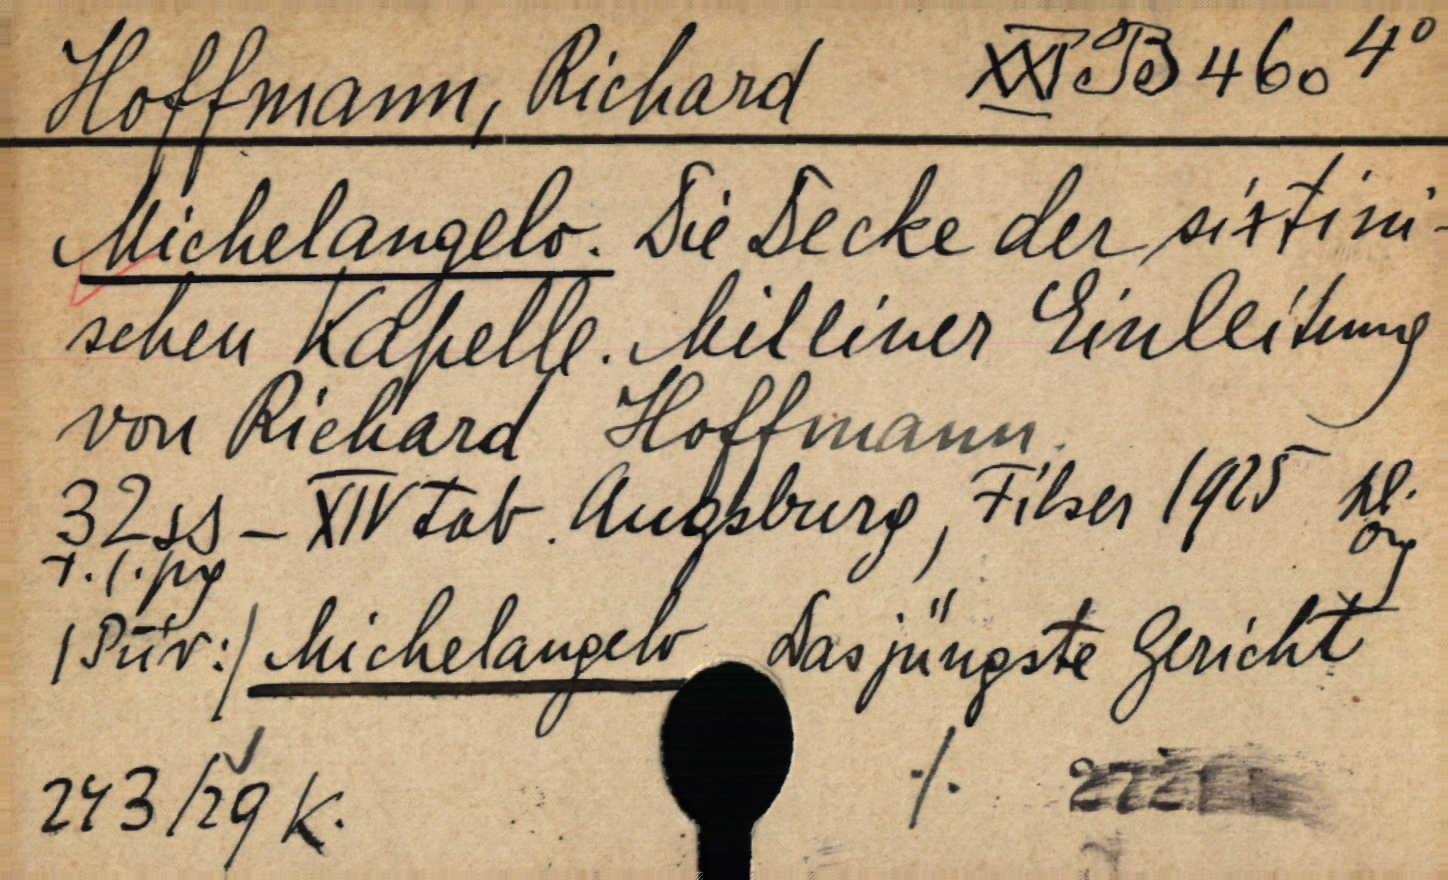 Hoffmann, Richard XXI B 460 4°
Michelangelo. Die Decke der sixtini-
schen Kapelle. Mit einer Einleitung
von Richard Hoffmann.
32 ss – XIV tab. Augsburg, Filser 1925
Michelangelo Das jüngste Gericht
243/29 K. ·/·